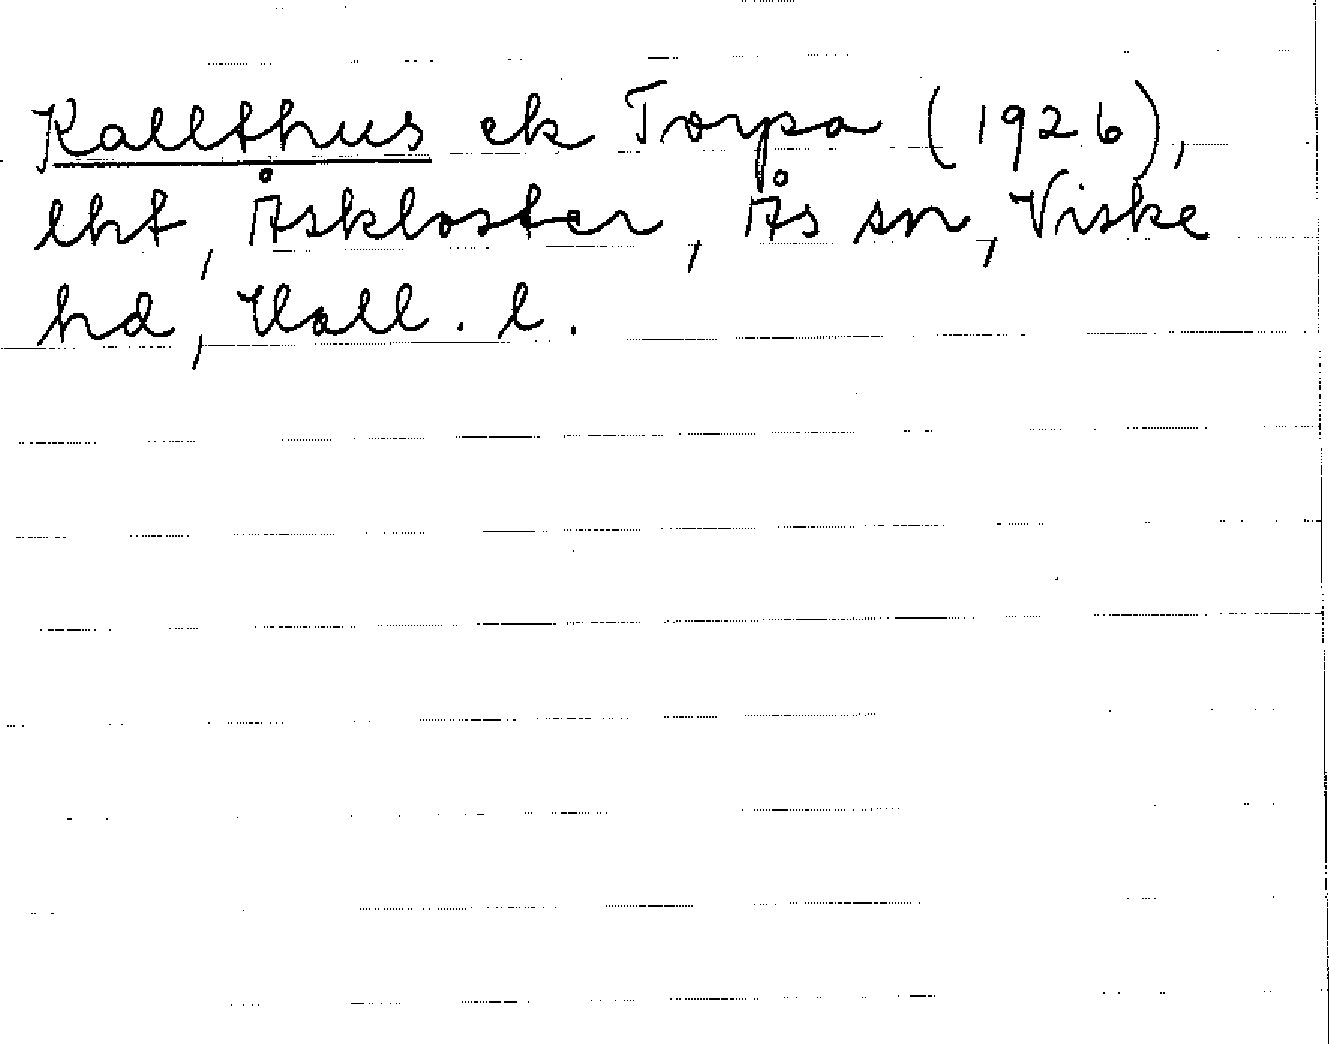 Kallthus ek Torpa (1926),
lht, Åskloster, Ås sn, Viske
hd, Hall. l.